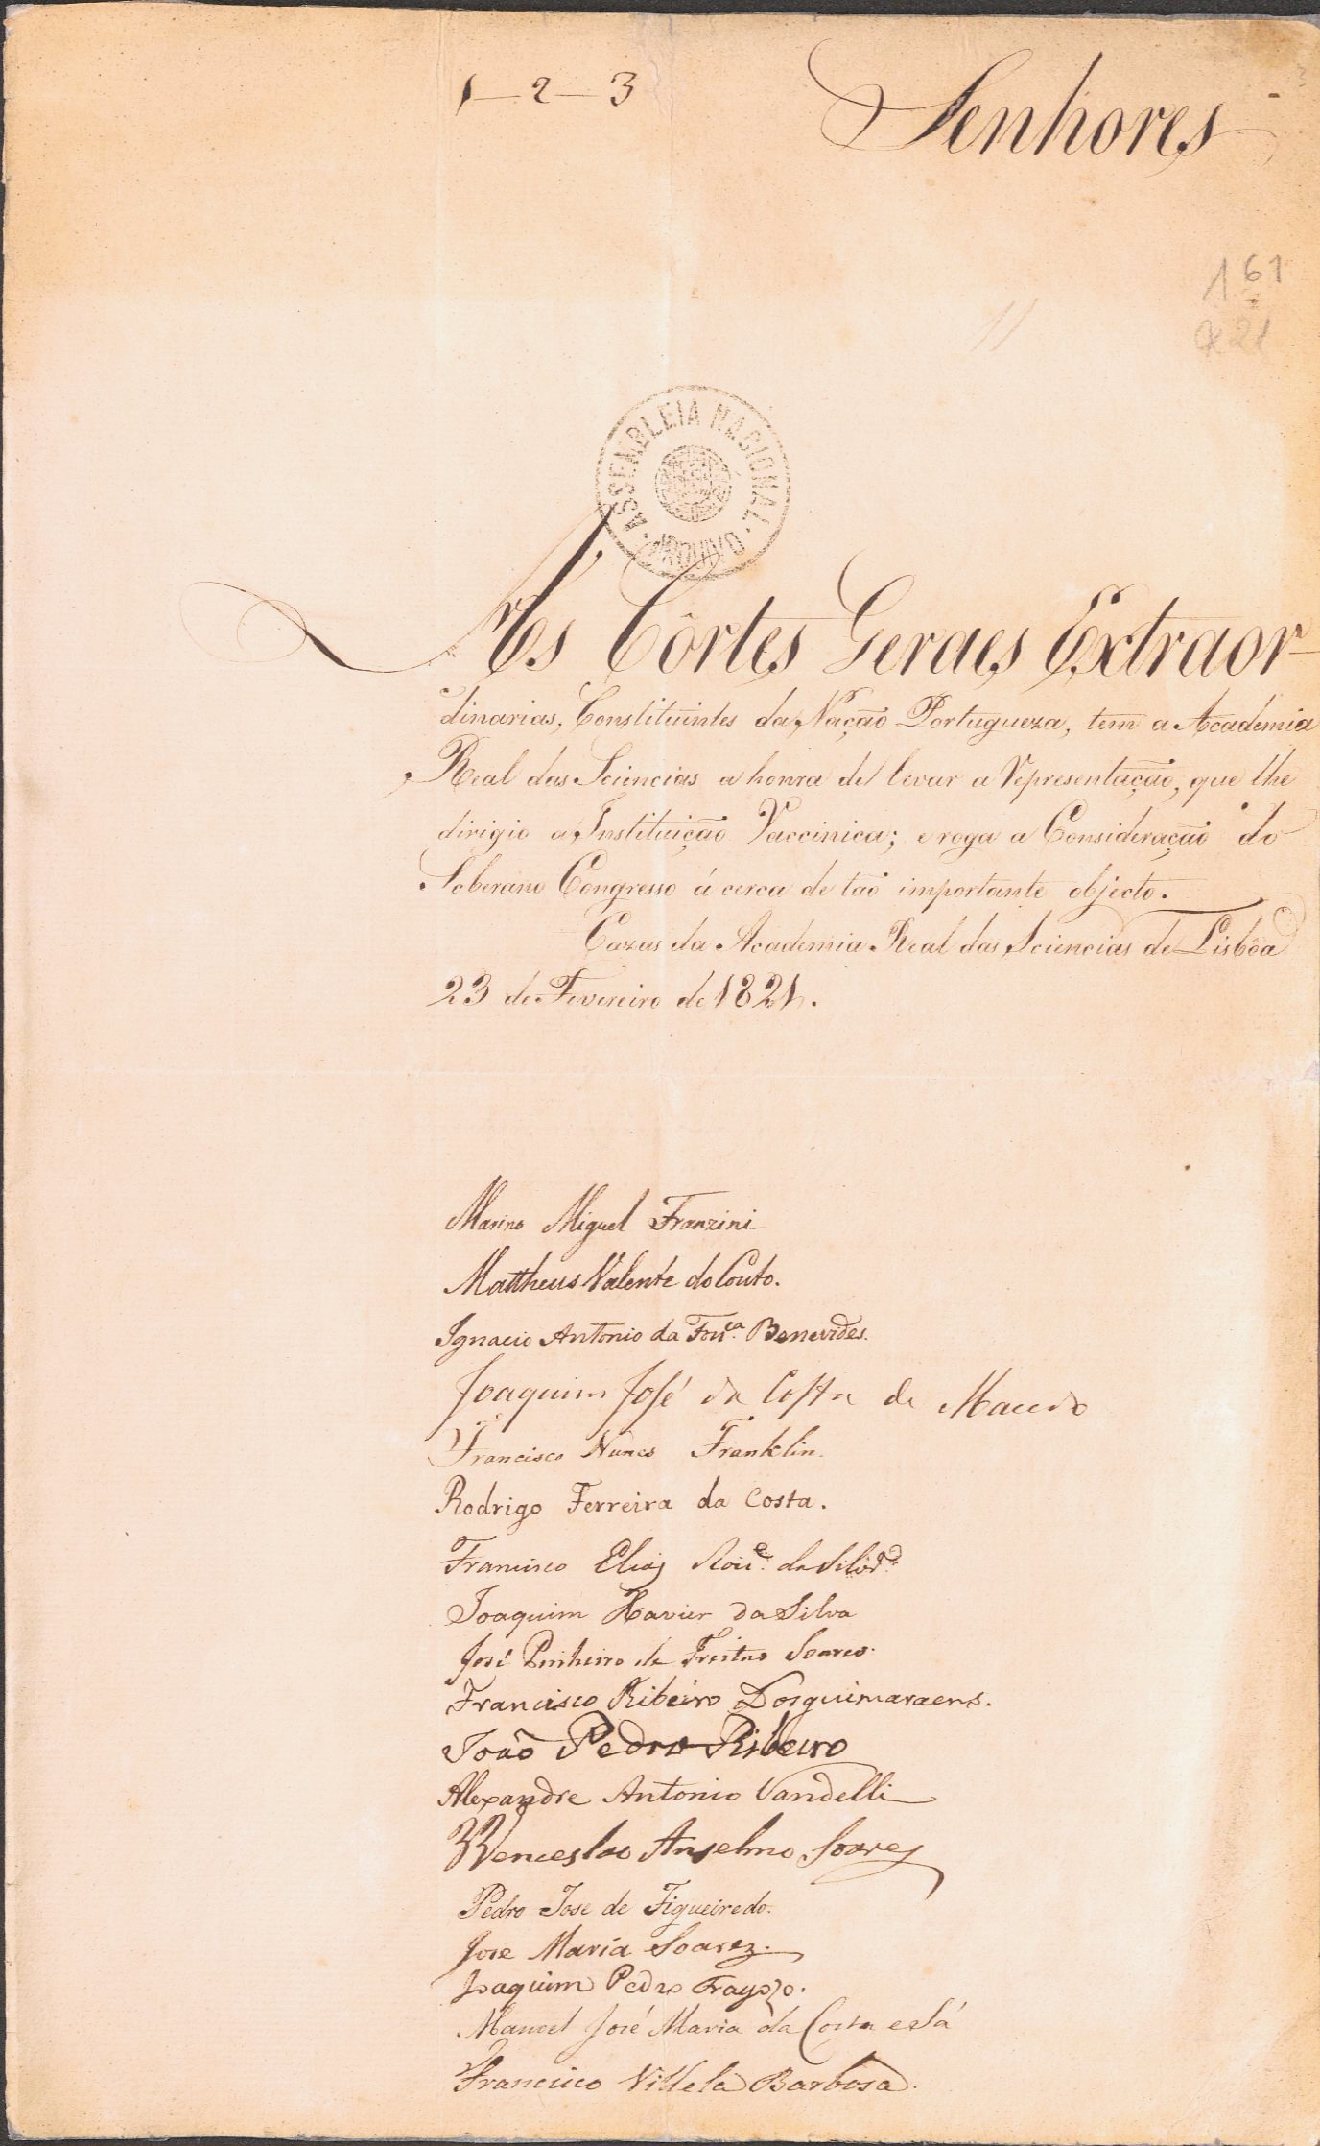 1 – 2 – 3
Senhores
161
821
ASSEMBLEIA NACIONAL
ARQUIVO
A's Côrtes Geraes Extraor-
dinarias, Constituintes da Nação Portugueza, tem a Academia
Real das Sciencias a honra de levar a Representação, que lhe
dirigio a Instituição Vaccinica; e roga a Consideração do
Soberano Congresso á cerca de tão importante objecto.
Cazas da Academia Real das Sciencias de Lisbôa
23 de Fevereiro de 1821.
Marino Miguel Franzini
Mattheus Valente do Couto.
Ignacio Antonio da Fonca. Benevides.
Joaquim José da Costa de Macedo
Francisco Nunes Franklin.
Rodrigo Ferreira da Costa.
Francisco Elias Roiz da
Joaquim Xavier da Silva
José Pinheiro de Freitas Soares.
Francisco Ribeiro Dosguimaraens.
João Pedro Ribeiro
Alexandre Antonio Vandelli
Wenceslao Anselmo Soares
Pedro Jose de Figueiredo.
Jose Maria Soarez.
Joaquim Pedro Fragozo.
Manoel José Maria da Costa e Sá
Francisco Villela Barbosa.